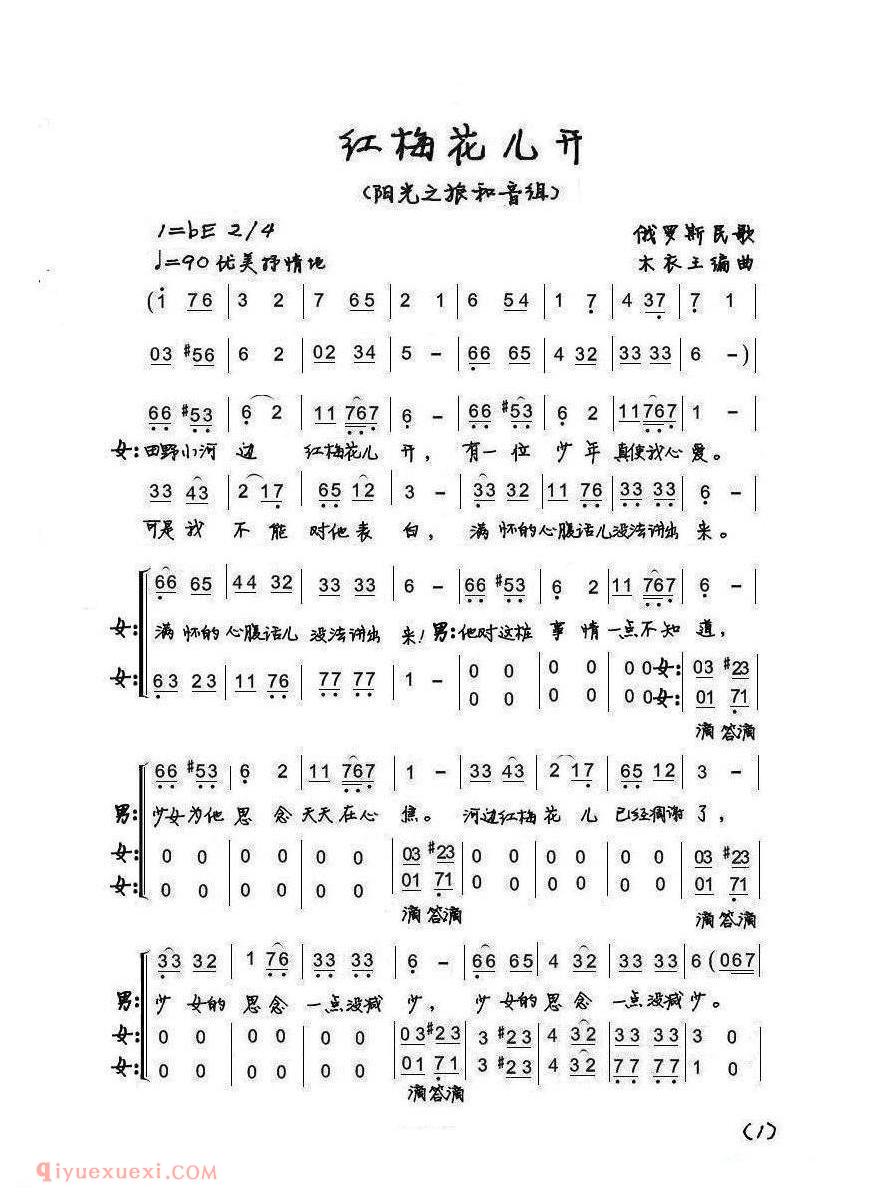 红梅花儿开
(阳光之旅和音组)
1=bE 2/4 俄罗斯民歌
♩=90 优美抒情地 木衣王编曲
(1 76 | 3 2 | 7 65 | 2 1 | 6 54 | 1 7 | 4 37 | 7 1 |
03 #56 | 6 2 | 02 34 | 5 – | 66 65 | 4 32 | 33 33 | 6 –) |
66 #53 | 6 2 | 11 767 | 6 – | 66 #53 | 6 2 | 11 767 | 1 – |
女:田野小河 边 红梅花儿 开, 有一位 少年 真使我心爱。
33 43 | 2 17 | 65 12 | 3 – | 33 32 | 11 76 | 33 33 | 6 – |
可是我 不能 对他表 白, 满怀的心腹话儿没法讲出 来。
66 65 | 44 32 | 33 33 | 6 – | 66 #53 | 6 2 | 11 767 | 6 – |
女: 满怀的 心腹话儿 没法讲出 来! 男:他对这桩 事情 一点不知 道,
女: 63 23 | 11 76 | 77 77 | 1 – | 0 0 | 0 0 | 0 0 女: | 03 #23 |
0 0 | 0 0 | 0 0 女: | 01 71 |
滴 答滴
66 #53 | 6 2 | 11 767 | 1 – | 33 43 | 2 17 | 65 12 | 3 – |
男: 少女为他 思念 天天在心 焦。 河边红梅 花儿 已经凋谢 了,
女: 0 0 | 0 0 | 0 0 | 03 #23 | 0 0 | 0 0 | 0 0 | 03 #23 |
女: 0 0 | 0 0 | 0 0 | 01 71 | 0 0 | 0 0 | 0 0 | 01 71 |
滴 答滴 滴 答滴
33 32 | 1 76 | 33 33 | 6 – | 66 65 | 4 32 | 33 33 | 6 (067 |
男: 少女的 思念 一点没减 少, 少女的 思念 一点没减 少。
女: 0 0 | 0 0 | 0 0 | 03 #23 | 3 #23 | 4 32 | 33 33 | 3 0 |
女: 0 0 | 0 0 | 0 0 | 01 71 | 3 #23 | 4 32 | 77 77 | 1 0 |
滴 答滴
(1)
qiyuexuexi.com